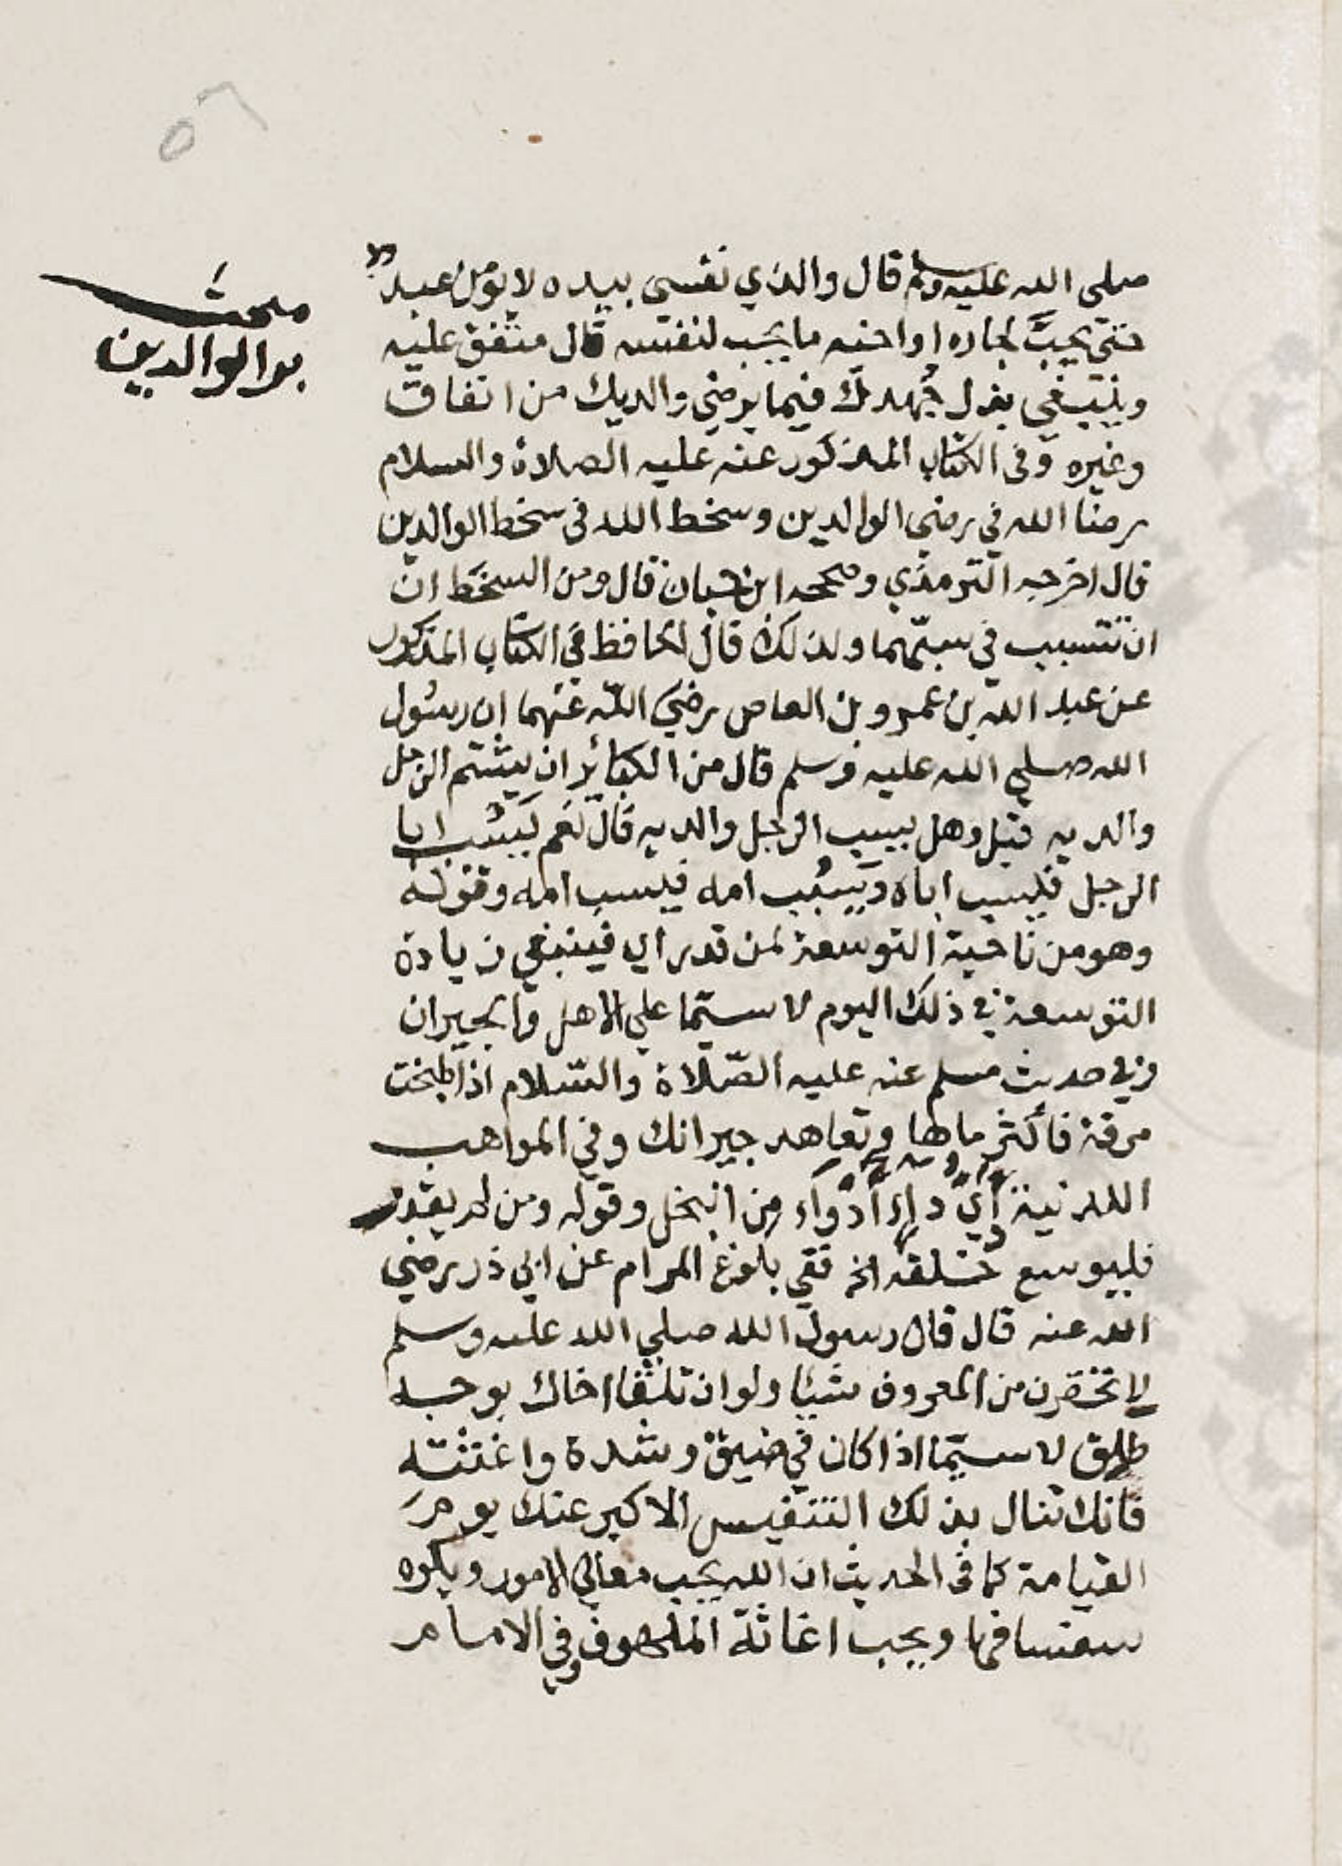 ٥٦
مبحث
بر الوالدين
صلى الله عليه وسلم قال والذي نفسي بيده لا يؤمن عبد
حتى يحبَّ لجاره او اخيه ما يحب لنفسه قال متفق عليه
وينبغي بذل جُهدك فيما يرضي والديك من انفاق
وغيره وفي الكتاب المذكور عنه عليه الصلاة والسلام
رضا الله في رضى الوالدين وسخط الله في سخط الوالدين
قال اخرجه الترمذي وصححه ابن حبان قال ومن السخط ان
ان تتسبب في سبّهما ولذلك قال الحافظ في الكتاب المذكور
عن عبد الله بن عمرو بن العاص رضي الله عنهما ان رسول
الله صلى الله عليه وسلم قال من الكبائر ان يشتم الرجل
والديه قيل وهل يسب الرجل والديه قال نعم يسُب ابا
الرجل فيسب اباه ويسُب امه فيسب امه وقوله
وهو من ناحية التوسعة لمن قدر اي فينبغي زيادة
التوسعة في ذلك اليوم لا سيّما على الاهل والجيران
وفي حديث مسلم عنه عليه الصّلاة والسّلام اذا طبخت
مرقة فأكثر ماها وتعاهد جيرانك وفي المواهب
اللدنية أيّ داءٍ أدْوَاء من البخل وقوله ومن لم يقدر
فليوسع خلقه الخ ففي بلوغ المرام عن ابي ذر رضي
الله عنه قال قال رسول الله صلى الله عليه وسلم
لا تحقرن من المعروف شيئا ولو ان تلقا اخاك بوجه
طلق لا سيّما اذا كان في ضيق وشدة واغثته
فانك تنال بذلك التنفيس الاكبر عنك يوم
القيامة كما في الحديث ان الله يحب معالي الامور ويكره
سفسافها ويحب اغاثة الملهوف وفي الامام